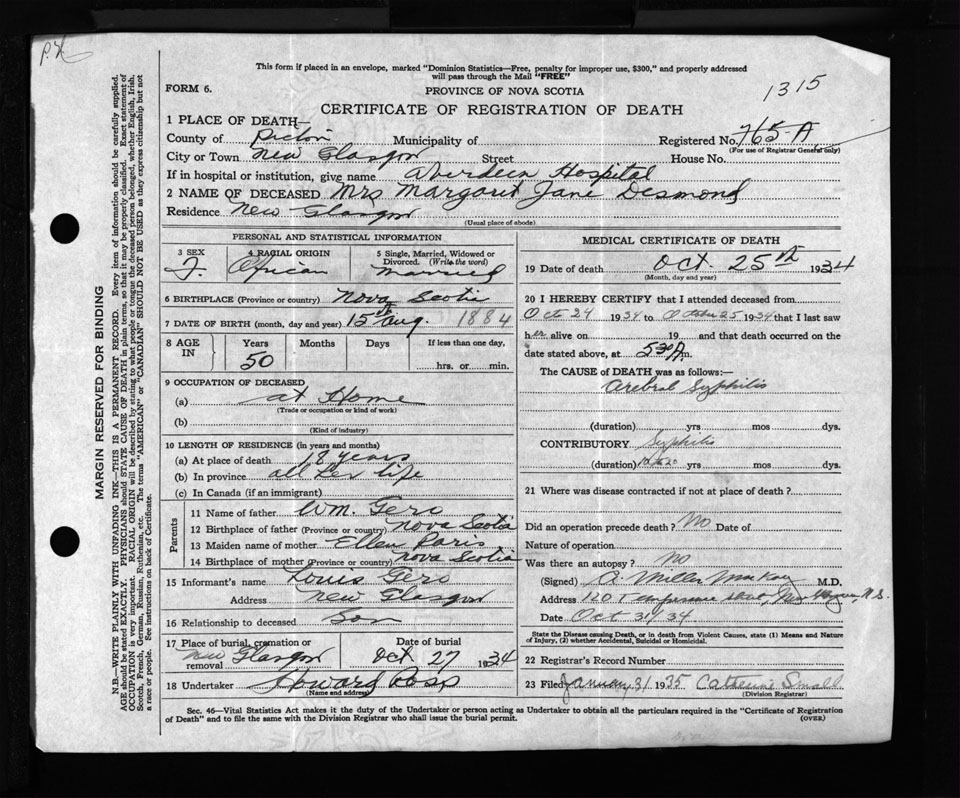 P.X
1315
This form if placed in an envelope, marked "Dominion Statistics—Free, penalty for improper use, $300," and properly addressed
will pass through the Mail "FREE"
FORM 6.
PROVINCE OF NOVA SCOTIA
CERTIFICATE OF REGISTRATION OF DEATH
1 PLACE OF DEATH—
County of Pictou Municipality of Registered No. 765-A
(For use of Registrar General only)
City or Town New Glasgow Street House No.
If in hospital or institution, give name Aberdeen Hospital
2 NAME OF DECEASED Mrs Margaret Jane Desmond
Residence New Glasgow
(Usual place of abode)
PERSONAL AND STATISTICAL INFORMATION
3 SEX
F.
4 RACIAL ORIGIN
African
5 Single, Married, Widowed or
Divorced. (Write the word)
Married
6 BIRTHPLACE (Province or country) Nova Scotia
7 DATE OF BIRTH (month, day and year) 15th Aug 1884
8 AGE
IN
Years
50
Months
Days
If less than one day,
hrs. or min.
9 OCCUPATION OF DECEASED
(a) at Home
(Trade or occupation or kind of work)
(b)
(Kind of industry)
10 LENGTH OF RESIDENCE (in years and months)
(a) At place of death 18 years
(b) In province all her life
(c) In Canada (if an immigrant)
Parents
11 Name of father Wm. Gero
12 Birthplace of father (Province or country) Nova Scotia
13 Maiden name of mother Ellen Paris
14 Birthplace of mother (Province or country) Nova Scotia
15 Informant's name Louis Gero
Address New Glasgow
16 Relationship to deceased Son
17 Place of burial, cremation or
removal New Glasgow
Date of burial
Oct 27 1934
18 Undertaker Howard Ross
(Name and address)
MEDICAL CERTIFICATE OF DEATH
19 Date of death Oct. 25th 1934
(Month, day and year)
20 I HEREBY CERTIFY that I attended deceased from
Oct 24 1934 to October 25 1934 that I last saw
her alive on 19 and that death occurred on the
date stated above, at 530 A m.
The CAUSE of DEATH was as follows:—
Cerebral Syphilis
(duration) yrs mos dys.
CONTRIBUTORY Syphilis
(duration) yrs mos dys.
21 Where was disease contracted if not at place of death?
Did an operation precede death? No Date of
Nature of operation
Was there an autopsy? No
(Signed) A. Miller MacKay M.D.
Address 120 Temperance street, New Glasgow, N.S.
Date Oct 34
State the Disease causing Death, or in death from Violent Causes, state (1) Means and Nature
of Injury, (2) whether Accidental, Suicidal or Homicidal.
22 Registrar's Record Number
23 Filed January 31 1935 Catherine Small
(Division Registrar)
Sec. 46—Vital Statistics Act makes it the duty of the Undertaker or person acting as Undertaker to obtain all the particulars required in the "Certificate of Registration
of Death" and to file the same with the Division Registrar who shall issue the burial permit.
(OVER)
MARGIN RESERVED FOR BINDING
N.B.—WRITE PLAINLY WITH UNFADING INK—THIS IS A PERMANENT RECORD. Every item of information should be carefully supplied.
AGE should be stated EXACTLY. PHYSICIANS should STATE CAUSE OF DEATH in plain terms, so that it may be properly classified. Exact statement of
OCCUPATION is very important. RACIAL ORIGIN will be described by stating to what people or tongue the deceased person belonged, whether English, Irish,
Scotch, French, German, Russian, Ruthenian, etc. The terms "AMERICAN" or "CANADIAN" SHOULD NOT BE USED as they express citizenship but not
a race or people. See instructions on back of Certificate.